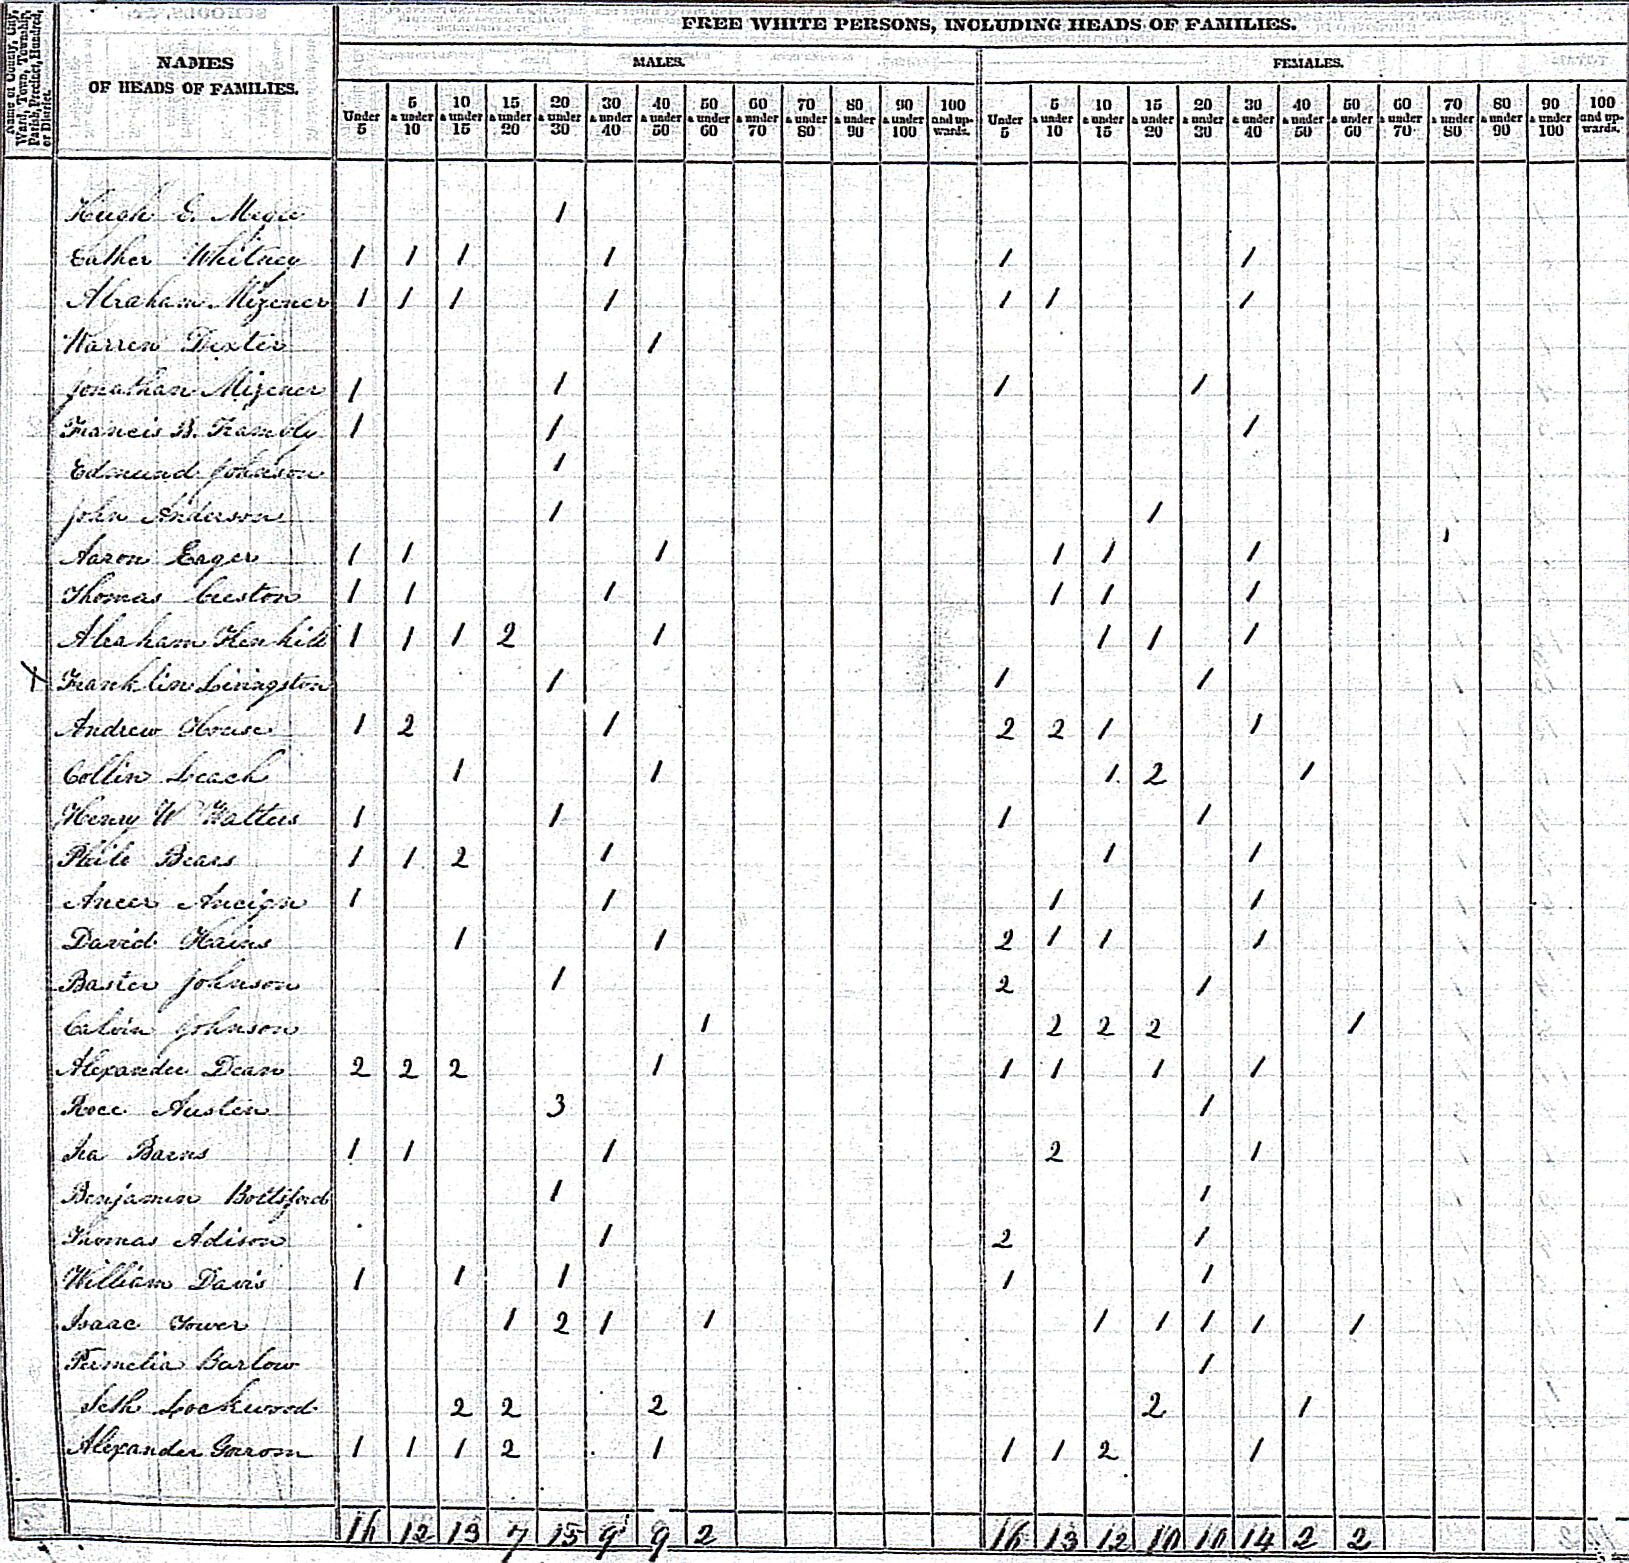 Name of County, City, Ward, Town, Township, Parish, Precinct, Hundred, or District.
FREE WHITE PERSONS, INCLUDING HEADS OF FAMILIES.
NAMES OF HEADS OF FAMILIES.
MALES. FEMALES.
Under 5 5 & under 10 10 & under 15 15 & under 20 20 & under 30 30 & under 40 40 & under 50 50 & under 60 60 & under 70 70 & under 80 80 & under 90 90 & under 100 100 and upwards. Under 5 5 & under 10 10 & under 15 15 & under 20 20 & under 30 30 & under 40 40 & under 50 50 & under 60 60 & under 70 70 & under 80 80 & under 90 90 & under 100 100 and upwards.
Hugh E. 1
Esther Whitney 1 1 1 1 1 1
Abraham Mizener 1 1 1 1 1 1 1
Warren Dexter 1
Jonathan Mizener 1 1 1 1
Francis B. 1 1 1
Edmund Johnson 1
John Anderson 1 1
Aaron Eager 1 1 1 1 1 1 1
Thomas 1 1 1 1 1 1
Abraham 1 1 1 2 1 1 1 1
Franklin Livingston 1 1 1
Andrew House 1 2 1 2 2 1 1
Collin Leach 1 1 1 2 1
Henry W 1 1 1 1
Philo Bears 1 1 2 1 1 1
1 1 1 1
David Hains 1 1 2 1 1 1
Baster Johnson 1 2 1
Calvin Johnson 1 2 2 2 1
Alexander Dean 2 2 2 1 1 1 1 1
Austin 3 1
Ira Barns 1 1 1 2 1
Benjamin Bottsford 1 1
Thomas Adison 1 2 1
William Davis 1 1 1 1 1
Isaac Tower 1 2 1 1 1 1 1 1 1
Permelia Barlow 1
Seth Lockwood 2 2 2 2 1
Alexander 1 1 1 2 1 1 1 2 1
16 12 13 7 15 9 9 2 16 13 12 10 10 14 2 2